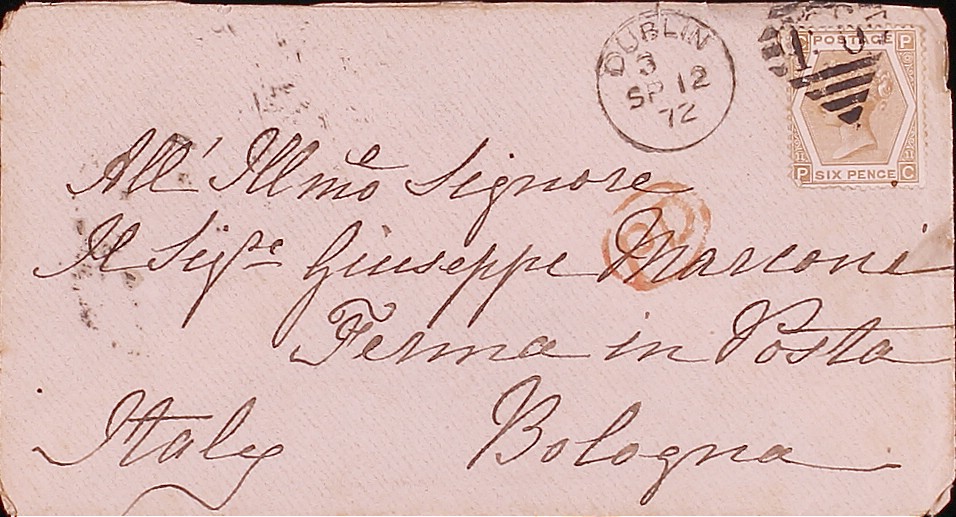 DUBLIN
3
SP 12
72
POSTAGE
P
SIX PENCE
P C
All' Illmo Signore
Il Sigre Giuseppe Marconi
Ferma in Posta
Italy Bologna
PD